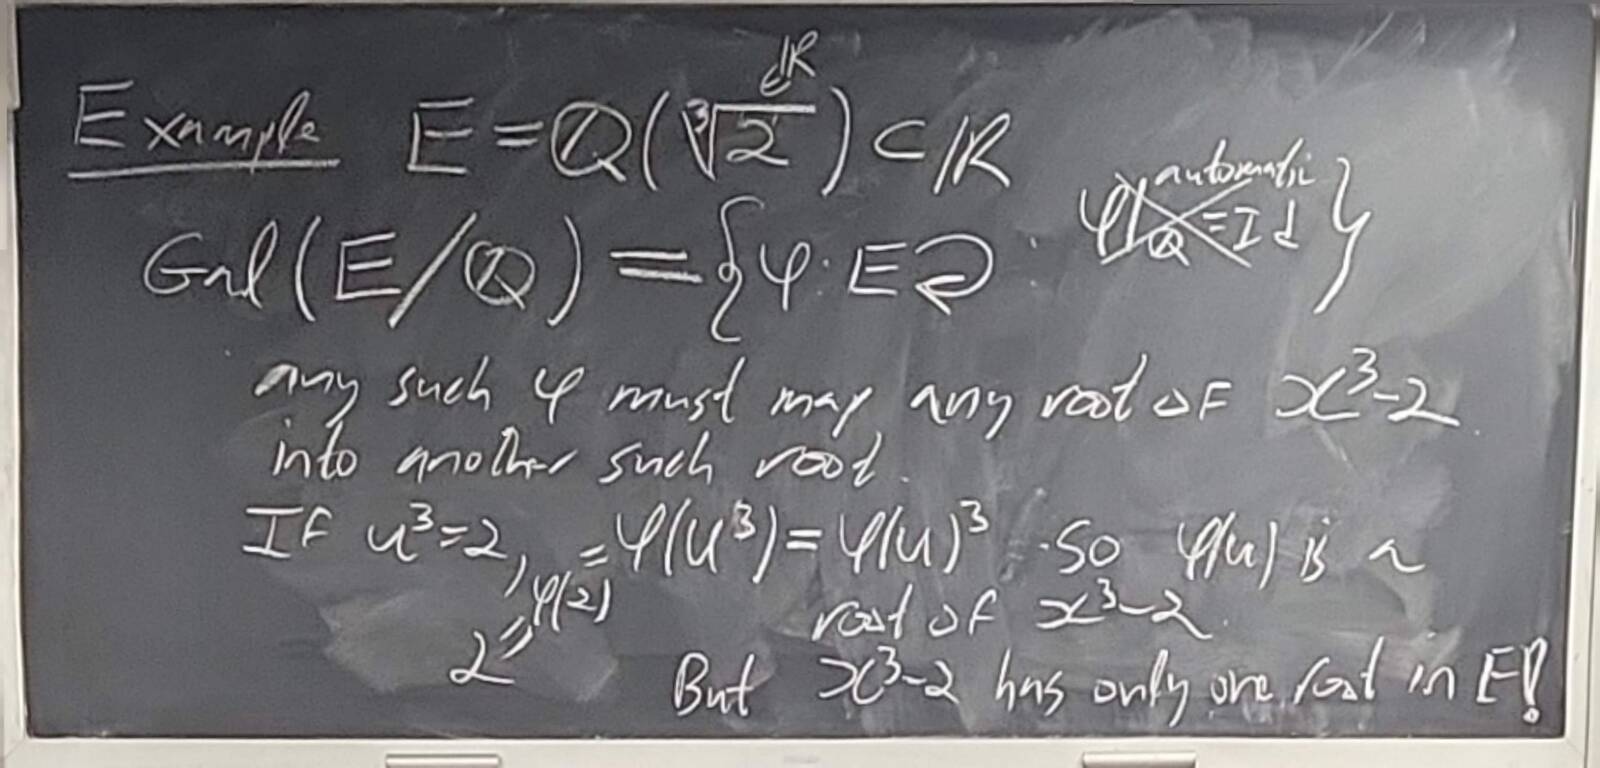 Example E = ℚ(∛2 ∈ℝ) ⊂ ℝ
Gal(E/ℚ) = {φ: E⮌ : φ|ℚ = Id automatic}
any such φ must map any root of x³-2
into another such root.
If u³=2, 2 = φ(2) = φ(u³) = φ(u)³. So φ(u) is a
root of x³-2.
But x³-2 has only one root in E!